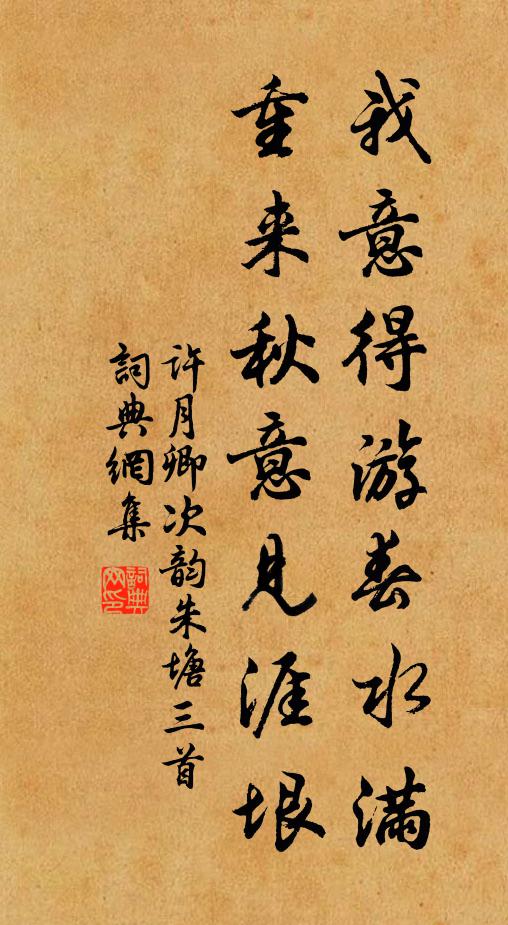 我意得游春水满
重来秋意见涯垠
許月卿次韵朱塘三首
詞典網集
詞典网印